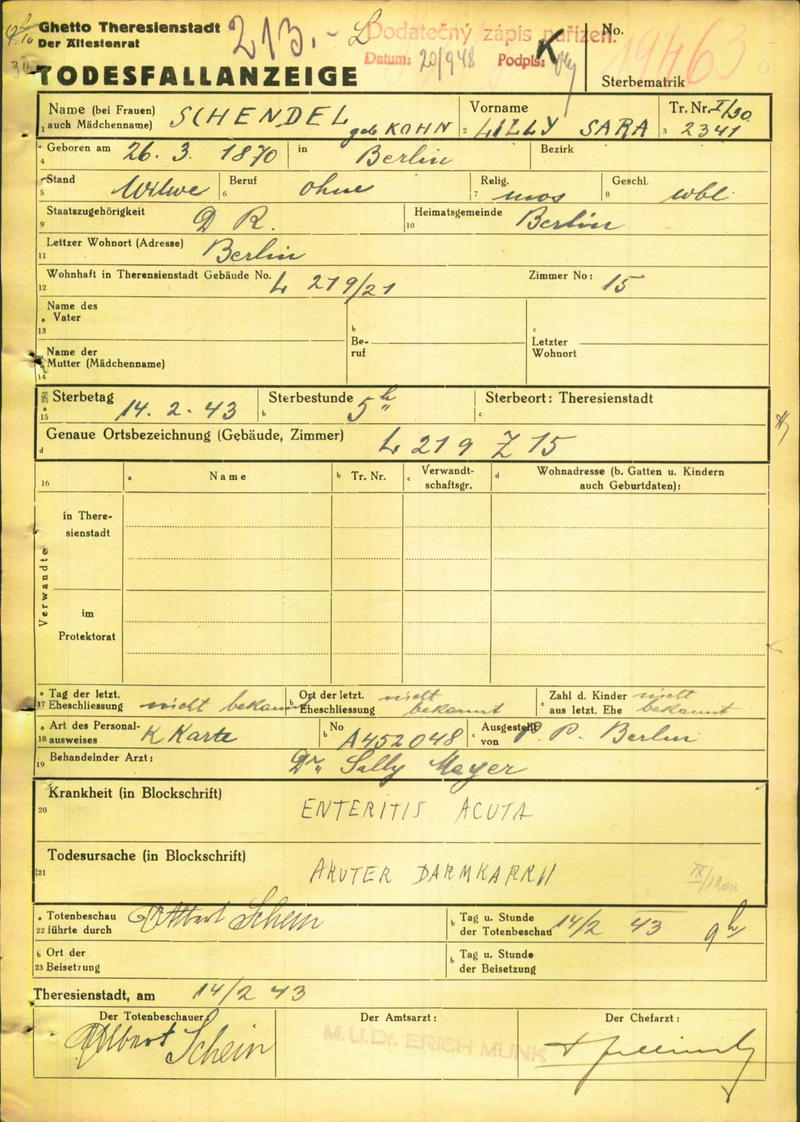 Ghetto Theresienstadt
Der Ältestenrat
213.-
Dodatečný zápis nařízen.
Datum: 20/9 48 Podpis:
No.
19463
TODESFALLANZEIGE
Sterbematrik
Name (bei Frauen) SCHENDEL Vorname Tr. Nr. I/90
1 auch Mädchenname) geb KOHN 2 LILLY SARA 3 2341
Geboren am 26. 3. 1870 in Berlin Bezirk
4
Stand Witwe Beruf ohne Relig. mos Geschl. wbl.
5 6 7 8
Staatszugehörigkeit D R. Heimatsgemeinde Berlin
9 10
Lettzer Wohnort (Adresse) Berlin
11
Wohnhaft in Therensienstadt Gebäude No. L 219/21 Zimmer No: 15
12
Name des
a Vater
13
b
Be-
ruf
c
Letzter
Wohnort
Name der
Mutter (Mädchenname)
14
Sterbetag 14. 2. 43 Sterbestunde 5h Sterbeort: Theresienstadt
a 15 b c
Genaue Ortsbezeichnung (Gebäude, Zimmer) L 219 Z 15
d
16 a Name b Tr. Nr. c Verwandt-
schaftsgr. d Wohnadresse (b. Gatten u. Kindern
auch Geburtdaten):
Verwandte
in There-
sienstadt
im
Protektorat
a Tag der letzt. b Ort der letzt. nicht c Zahl d. Kinder nicht
17 Eheschliessung nicht bekannt Eheschliessung bekannt aus letzt. Ehe bekannt
a Art des Personal- K Karte b No A452048 c Ausgestellt P. P. Berlin
18 ausweises von
Behandelnder Arzt: Dr. Sally Mayer
19
Krankheit (in Blockschrift)
20 ENTERITIS ACUTA
Todesursache (in Blockschrift)
21 AKUTER DARMKARRH
a Totenbeschau Albert Schein b Tag u. Stunde
22 führte durch der Totenbeschau 14/2 43 9h
b Ort der b Tag u. Stunde
23 Beisetzung der Beisetzung
Theresienstadt, am 14/2 43
Der Totenbeschauer: Der Amtsarzt: Der Chefarzt:
Albert Schein
M.U.Dr. ERICH MUNK